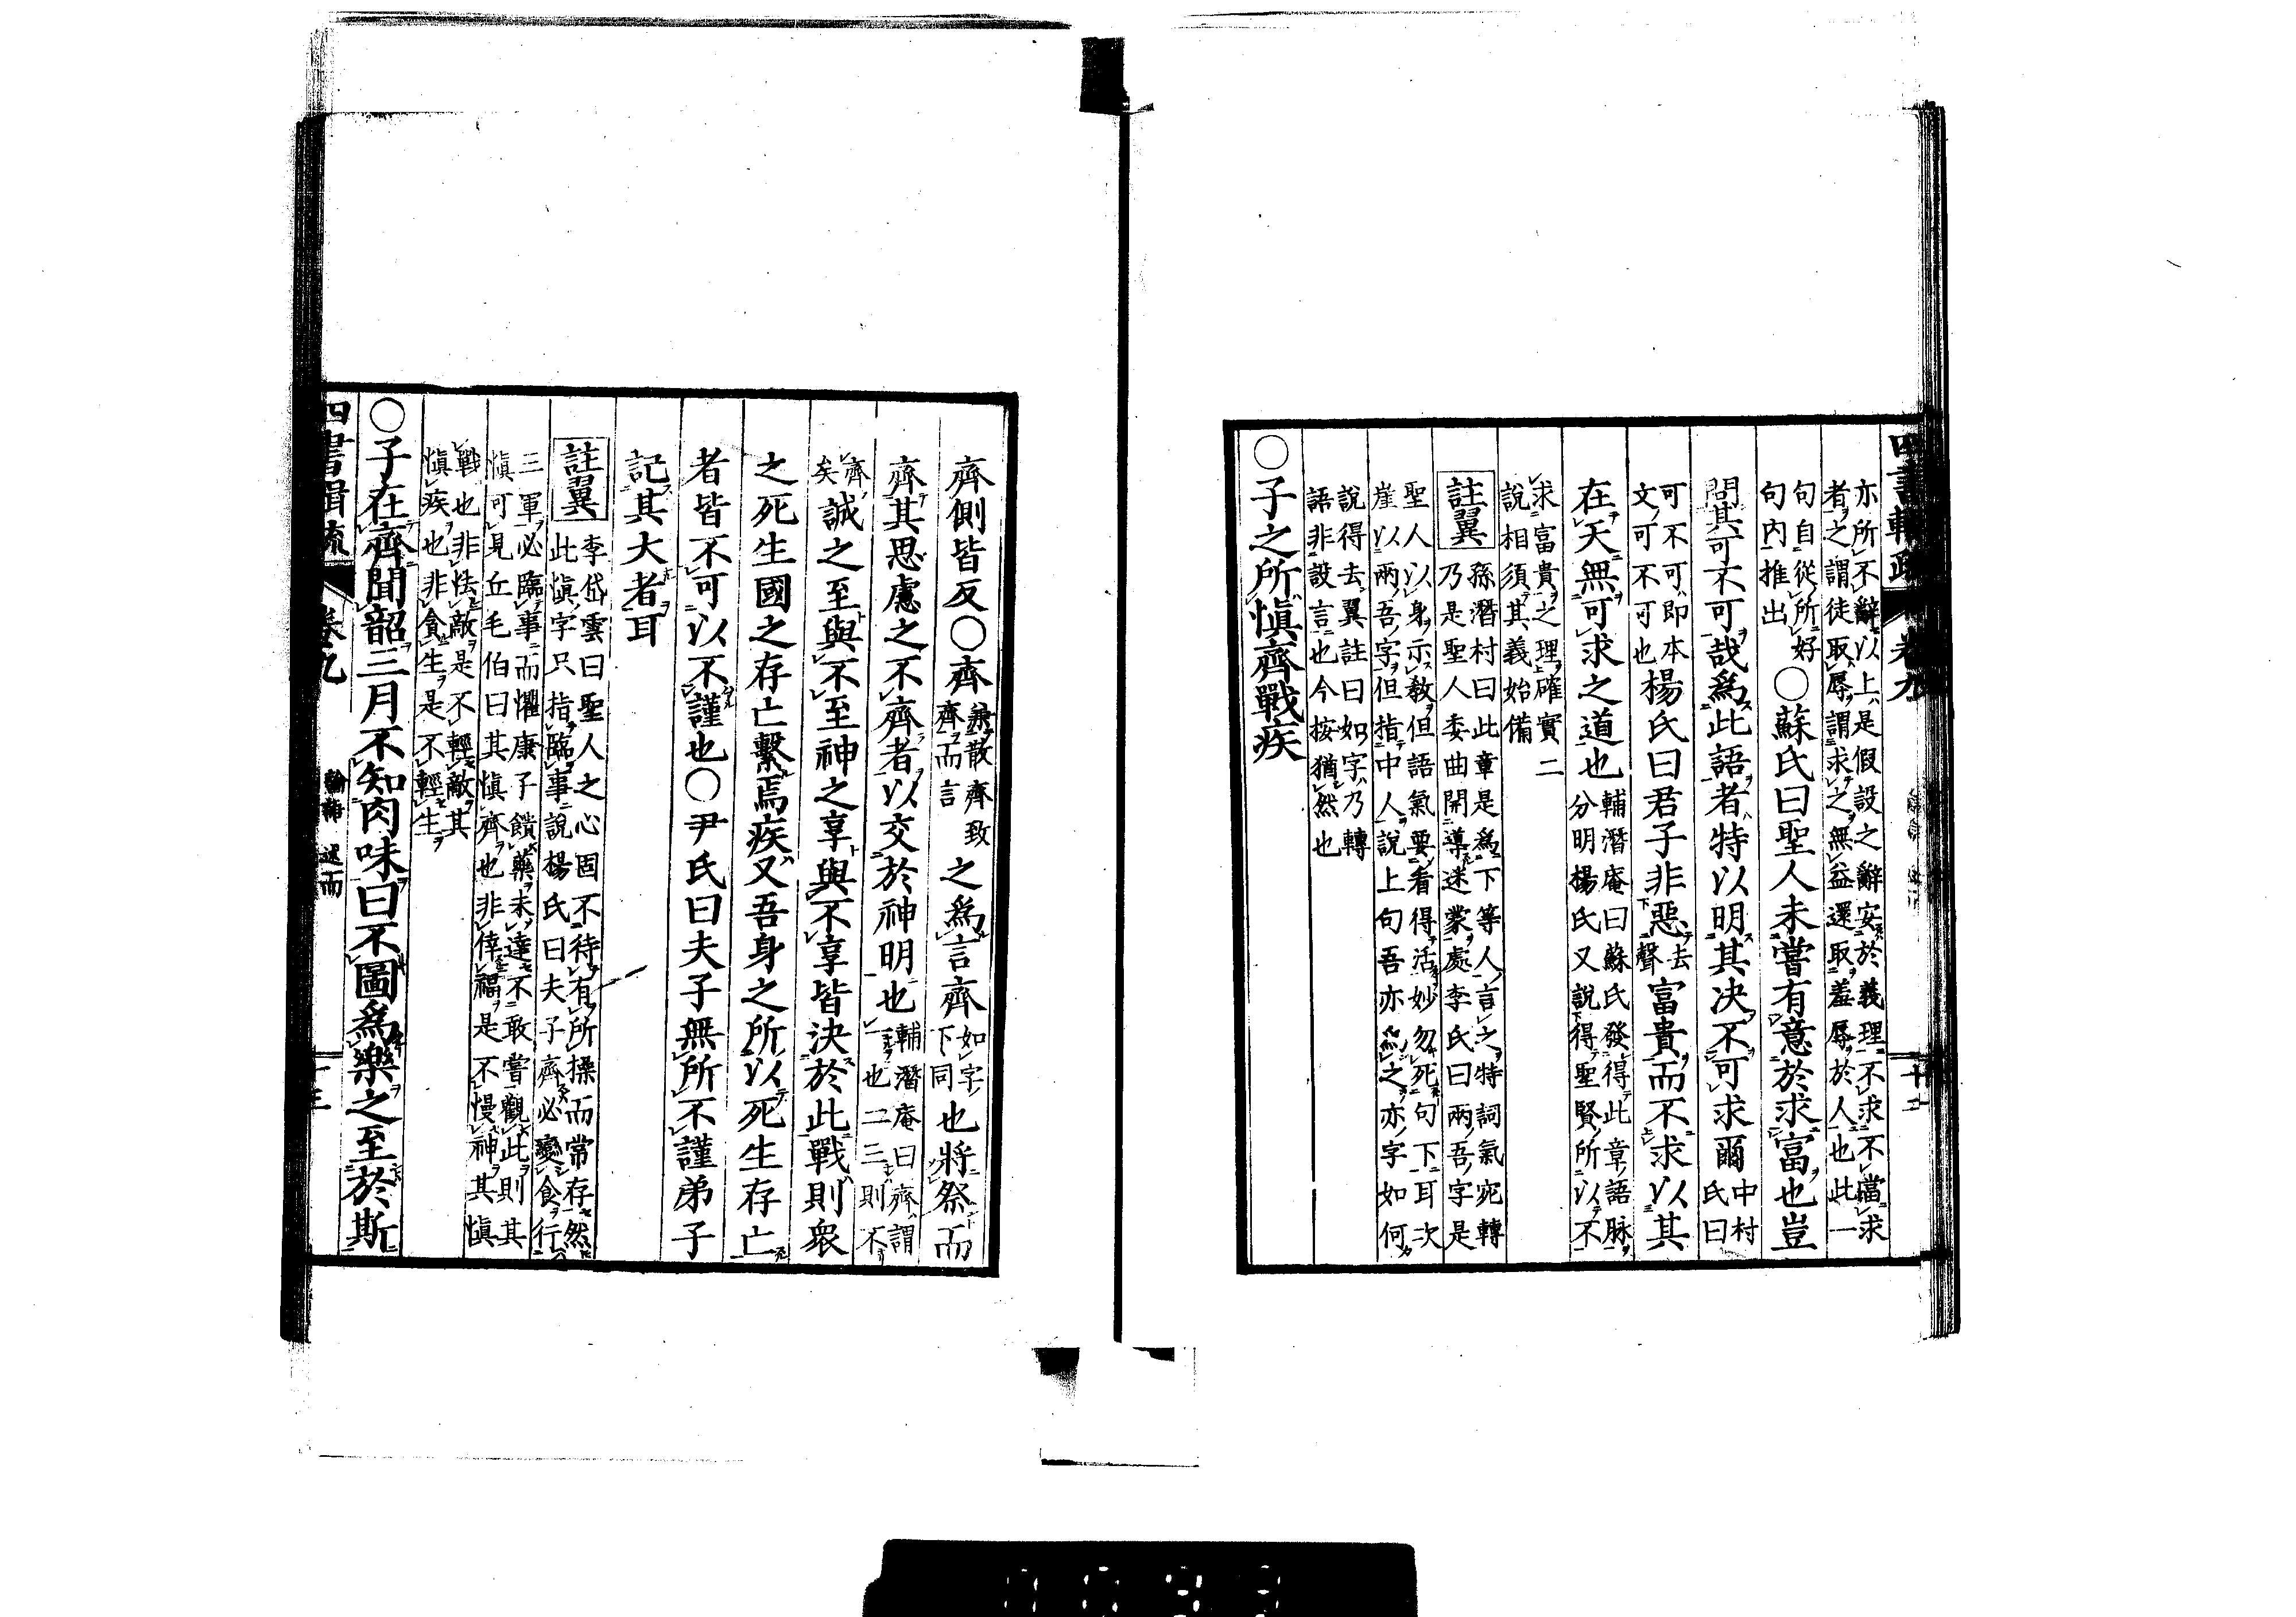 四書輯疏 卷九
亦所不辭以上是假設之辭安於義理不求不當求
者之謂徒取辱謂求之無益還取羞辱於人也此一
句自從所好
句内推出
○蘇氏曰聖人未嘗有意於求富也豈
問其可不可哉爲此語者特以明其決不可求爾
中村氏曰
可不可即本
文可不可也
楊氏曰君子非惡
去聲
富貴而不求以其
在天無可求之道也
輔潛庵曰蘇氏發得此章語脉
分明楊氏又說得聖賢所以不
求富貴之理確實二
說相須其義始備
註翼
孫潛村曰此章是爲下等人言之特詞氣宛轉
乃是聖人委曲開導迷蒙處李氏曰兩吾字是
聖人以身示教但語氣要看得活妙勿死句下耳次
崖以兩吾字但指中人說上句吾亦爲之亦字如何
說得去翼註曰如字乃轉
語非設言也今按猶然也
○子之所愼齊戰疾
齊側皆反○齊
兼散齊致
齊而言
之爲言齊
如字
下同
也將祭而
齊其思慮之不齊者以交於神明也
輔潛庵曰齊謂
一也二三則不
齊
矣
誠之至與不至神之享與不享皆決於此戰則衆
之死生國之存亡繫焉疾又吾身之所以死生存亡
者皆不可以不謹也○尹氏曰夫子無所不謹弟子
記其大者耳
註翼
李岱雲曰聖人之心固不待有所操而常存然
此愼字只指臨事說楊氏曰夫子齊必變食行
三軍必臨事而懼康子饋藥未達不敢嘗觀此則其
愼可見丘毛伯曰其愼齊也非倖福是不慢神其愼
戰也非怯敵是不輕敵其
愼疾也非貪生是不輕生
○子在齊聞韶三月不知肉味曰不圖爲樂之至於斯
四書輯疏 卷九 論語 述而 十三